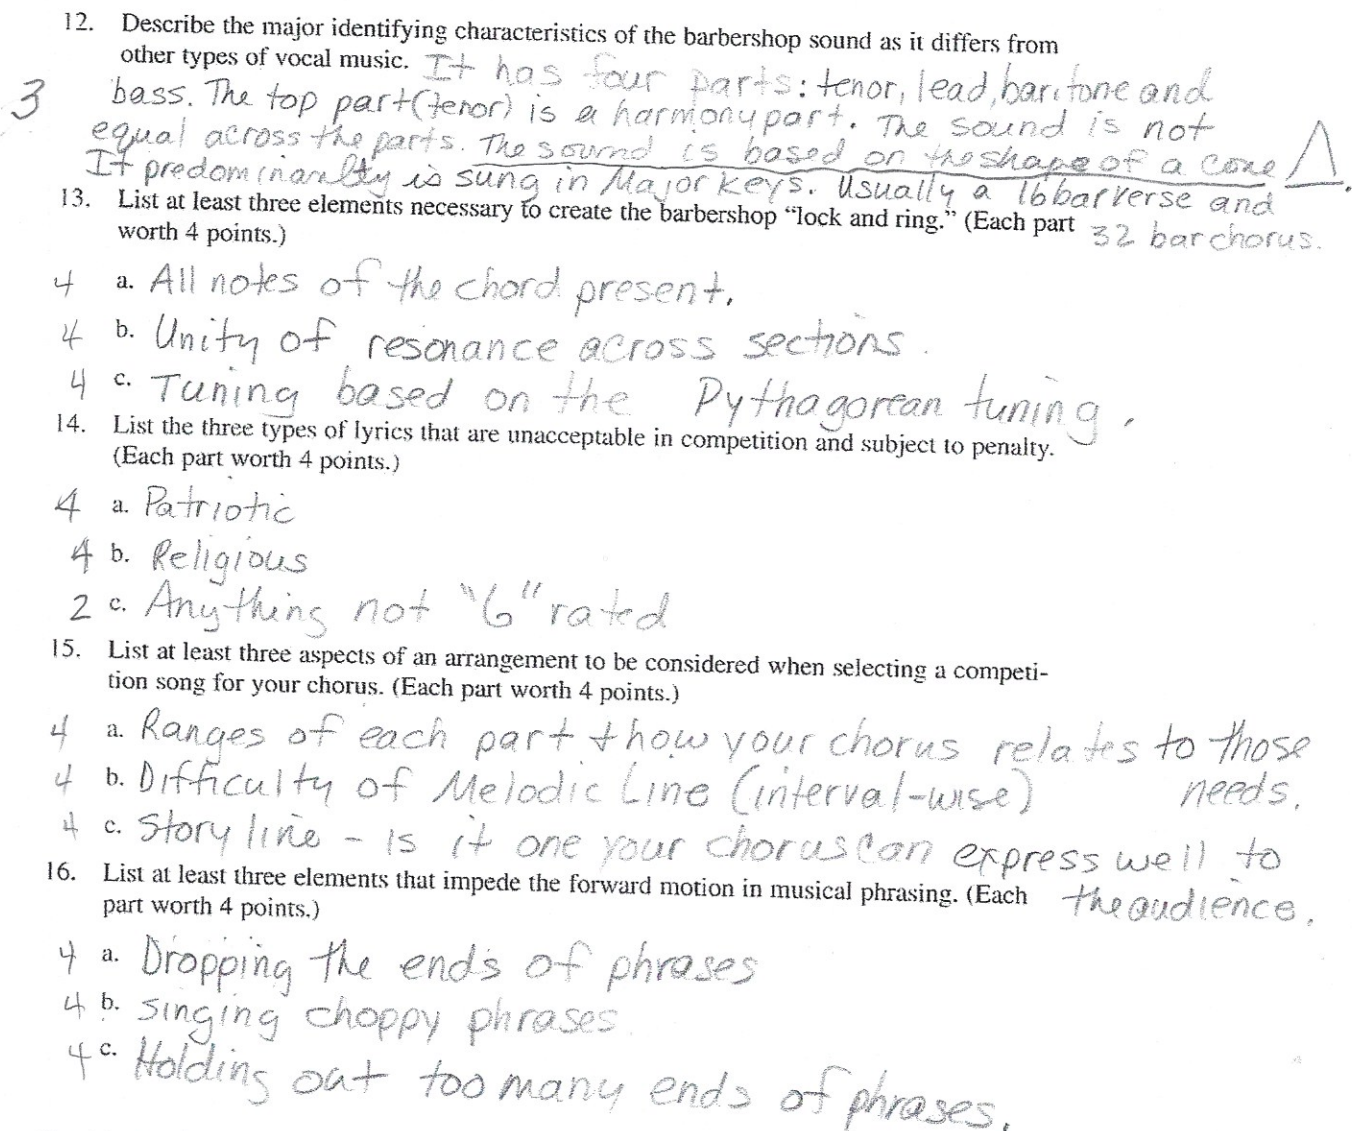 12. Describe the major identifying characteristics of the barbershop sound as it differs from
other types of vocal music. It has four parts: tenor, lead, baritone and
3 bass. The top part (tenor) is a harmony part. The sound is not
equal across the parts. The sound is based on the shape of a cone
It predominantly is sung in Major keys. Usually a 16 bar verse and
13. List at least three elements necessary to create the barbershop “lock and ring.” (Each part
worth 4 points.) 32 bar chorus.
4 a. All notes of the chord present.
4 b. Unity of resonance across sections.
4 c. Tuning based on the Pythagorean tuning.
14. List the three types of lyrics that are unacceptable in competition and subject to penalty.
(Each part worth 4 points.)
4 a. Patriotic
4 b. Religious
2 c. Anything not "G" rated
15. List at least three aspects of an arrangement to be considered when selecting a competi-
tion song for your chorus. (Each part worth 4 points.)
4 a. Ranges of each part + how your chorus relates to those
4 b. Difficulty of Melodic Line (interval-wise) needs.
4 c. Story line - Is it one your chorus can express well to
16. List at least three elements that impede the forward motion in musical phrasing. (Each the audience.
part worth 4 points.)
4 a. Dropping the ends of phrases
4 b. Singing choppy phrases
4 c. Holding out too many ends of phrases.